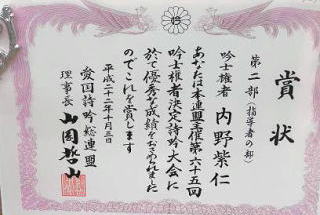 賞状
第二部(指導者の部)
吟士権者 内野紫仁
あなたは本連盟主催第六十五回
吟士権者決定詩吟大会に
於て優秀な成績をおさめました
のでこれを賞します
平成二十二年十月三日
愛国詩吟総連盟
理事長 山岡哲山